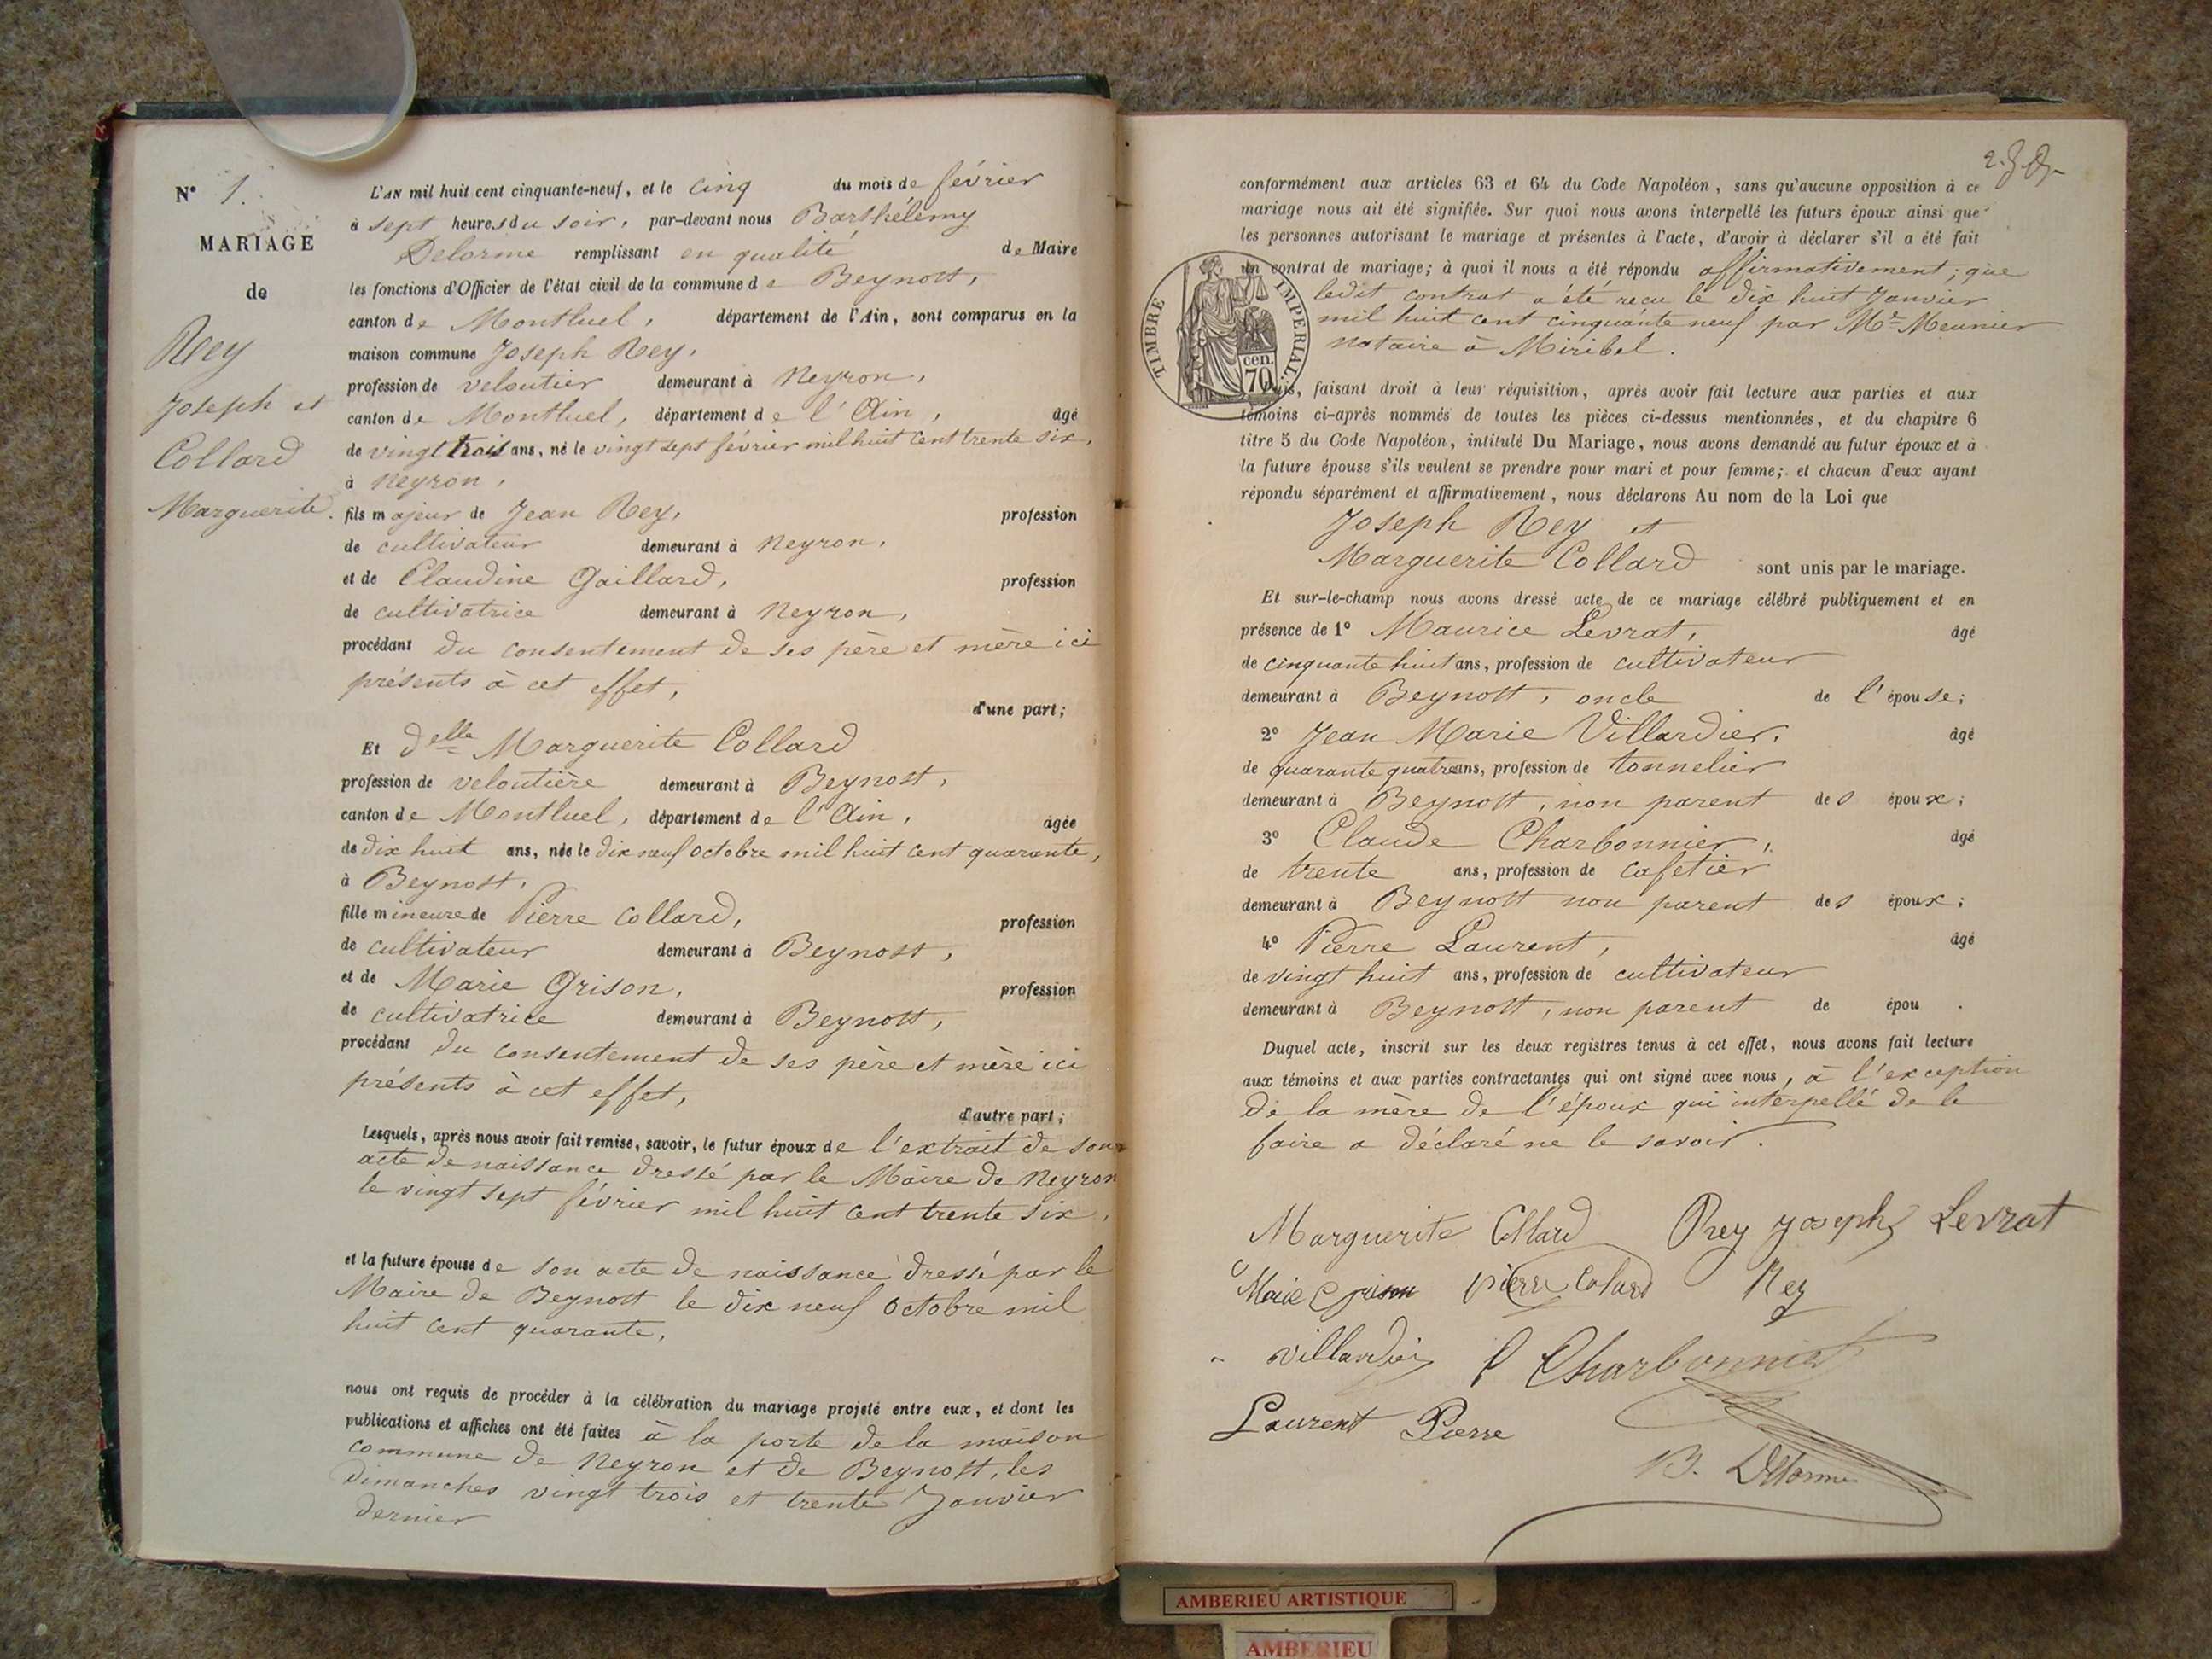 N° 1.
MARIAGE
de
Rey
Joseph et
Collard
Marguerite.
L'AN mil huit cent cinquante-neuf, et le cinq du mois de février
à sept heures du soir, par-devant nous Barthélemy
Delorme remplissant en qualité de Maire
les fonctions d'Officier de l'état civil de la commune de Beynost,
canton de Montluel, département de l'Ain, sont comparus en la
maison commune Joseph Rey,
profession de veloutier demeurant à Neyron,
canton de Montluel, département de l'Ain, âgé
de vingt trois ans, né le vingt sept février mil huit cent trente six,
à Neyron,
fils majeur de Jean Rey, profession
de cultivateur demeurant à Neyron,
et de Claudine Gaillard, profession
de cultivatrice demeurant à Neyron,
procédant du consentement de ses père et mère ici
présents à cet effet,
d'une part;
Et delle Marguerite Collard
profession de veloutière demeurant à Beynost,
canton de Montluel, département de l'Ain, âgée
de dix huit ans, née le dix neuf octobre mil huit cent quarante,
à Beynost,
fille mineure de Pierre Collard, profession
de cultivateur demeurant à Beynost,
et de Marie Grison, profession
de cultivatrice demeurant à Beynost,
procédant du consentement de ses père et mère ici
présents à cet effet,
d'autre part;
Lesquels, après nous avoir fait remise, savoir, le futur époux de l'extrait de son
acte de naissance dressé par le Maire de Neyron
le vingt sept février mil huit cent trente six,
et la future épouse de son acte de naissance dressé par le
Maire de Beynost le dix neuf octobre mil
huit cent quarante,
nous ont requis de procéder à la célébration du mariage projeté entre eux, et dont les
publications et affiches ont été faites à la porte de la maison
commune de Neyron et de Beynost, les
dimanches vingt trois et trente Janvier
dernier
conformément aux articles 63 et 64 du Code Napoléon, sans qu'aucune opposition à ce
mariage nous ait été signifiée. Sur quoi nous avons interpellé les futurs époux ainsi que
les personnes autorisant le mariage et présentes à l'acte, d'avoir à déclarer s'il a été fait
un contrat de mariage; à quoi il nous a été répondu affirmativement; que
ledit contrat a été reçu le dix huit Janvier
mil huit cent cinquante neuf par Me Meunier
notaire à Miribel.
TIMBRE IMPERIAL
70 cen.
Puis, faisant droit à leur réquisition, après avoir fait lecture aux parties et aux
témoins ci-après nommés de toutes les pièces ci-dessus mentionnées, et du chapitre 6
titre 5 du Code Napoléon, intitulé Du Mariage, nous avons demandé au futur époux et à
la future épouse s'ils veulent se prendre pour mari et pour femme; et chacun d'eux ayant
répondu séparément et affirmativement, nous déclarons Au nom de la Loi que
Joseph Rey et
Marguerite Collard sont unis par le mariage.
Et sur-le-champ nous avons dressé acte de ce mariage célébré publiquement et en
présence de 1° Maurice Levrat, âgé
de cinquante huit ans, profession de cultivateur
demeurant à Beynost, oncle de l'épouse;
2° Jean Marie Villardier, âgé
de quarante quatre ans, profession de tonnelier
demeurant à Beynost, non parent des époux;
3° Claude Charbonnier, âgé
de trente ans, profession de cafetier
demeurant à Beynost non parent des époux;
4° Pierre Laurent, âgé
de vingt huit ans, profession de cultivateur
demeurant à Beynost, non parent de épou .
Duquel acte, inscrit sur les deux registres tenus à cet effet, nous avons fait lecture
aux témoins et aux parties contractantes qui ont signé avec nous, à l'exception
de la mère de l'époux qui interpellé de le
faire a déclaré ne le savoir.
Marguerite Collard Rey Joseph Levrat
Marie Grison pierre Colard Rey
Villardier C Charbonnier
Laurent Pierre
B. Delorme
AMBERIEU ARTISTIQUE
AMBERIEU